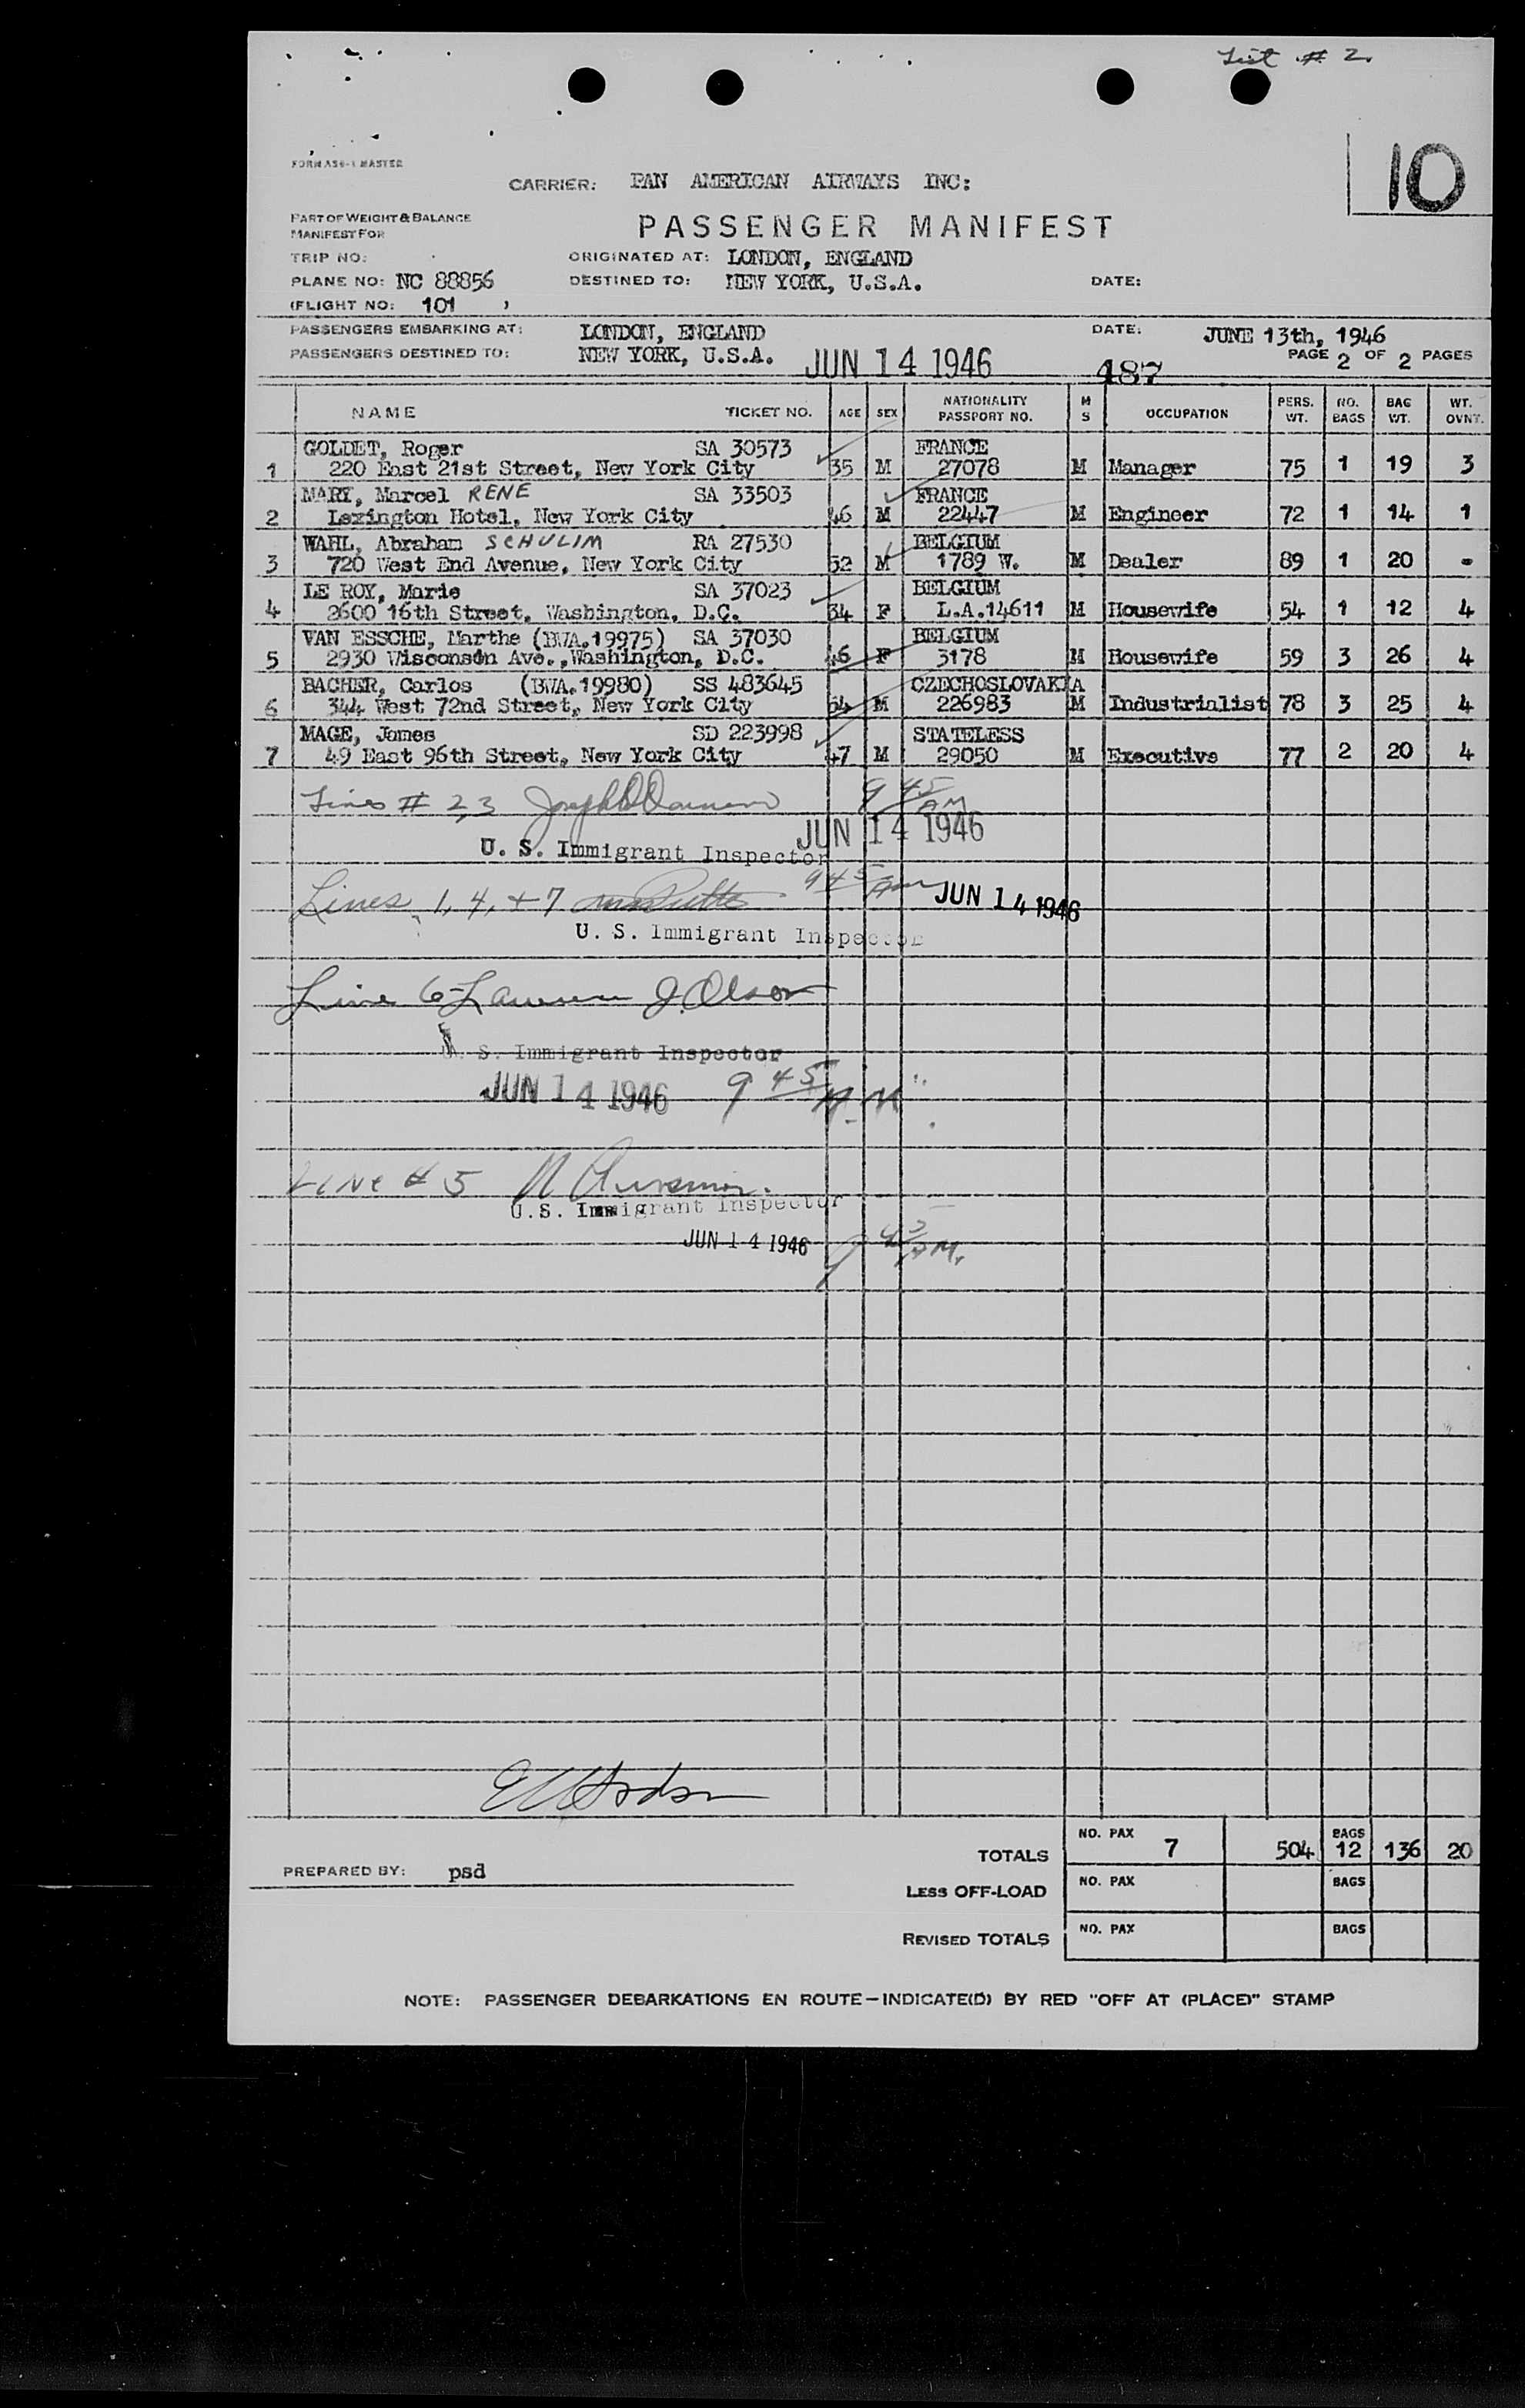 List # 2.
10
FORM AS6-1 MASTER
CARRIER: PAN AMERICAN AIRWAYS INC:
PART OF WEIGHT & BALANCE
MANIFEST FOR
PASSENGER MANIFEST
TRIP NO: ORIGINATED AT: LONDON, ENGLAND
PLANE NO: NC 88856 DESTINED TO: NEW YORK, U.S.A. DATE:
(FLIGHT NO: 101 )
PASSENGERS EMBARKING AT: LONDON, ENGLAND DATE: JUNE 13th, 1946
PASSENGERS DESTINED TO: NEW YORK, U.S.A. JUN 14 1946 487 PAGE 2 OF 2 PAGES
NAME TICKET NO. AGE SEX NATIONALITY PASSPORT NO. M S OCCUPATION PERS. WT. NO. BAGS BAG WT. WT. OVNT.
GOLDET, Roger SA 30573 FRANCE
1 220 East 21st Street, New York City 35 M 27078 M Manager 75 1 19 3
MARY, Marcel RENE SA 33503 FRANCE
2 Lexington Hotel, New York City 46 M 22447 M Engineer 72 1 14 1
WAHL, Abraham SCHULIM RA 27530 BELGIUM
3 720 West End Avenue, New York City 52 M 1789 W. M Dealer 89 1 20 -
LE ROY, Marie SA 37023 BELGIUM
4 2600 16th Street, Washington, D.C. 34 F L.A.14611 M Housewife 54 1 12 4
VAN ESSCHE, Marthe (BWA.19975) SA 37030 BELGIUM
5 2930 Wisconson Ave.,Washington, D.C. 46 F 3178 M Housewife 59 3 26 4
BACHER, Carlos (BWA.19980) SS 483645 CZECHOSLOVAKIA
6 344 West 72nd Street, New York City 54 M 226983 M Industrialist 78 3 25 4
MAGE, James SD 223998 STATELESS
7 49 East 96th Street, New York City 47 M 29050 M Executive 77 2 20 4
Lines # 2,3 9 45 AM
JUN 14 1946
U. S. Immigrant Inspector
Lines 1, 4, + 7 9 45 Am JUN 14 1946
U. S. Immigrant Inspector
Line 6- J. Olson
U. S. Immigrant Inspector
JUN 14 1946 9 45 A.M.
LINE # 5
U.S. Immigrant Inspector
JUN 14 1946 9 45 AM.
TOTALS NO. PAX 7 504 BAGS 12 136 20
PREPARED BY: psd
LESS OFF-LOAD NO. PAX BAGS
REVISED TOTALS NO. PAX BAGS
NOTE: PASSENGER DEBARKATIONS EN ROUTE—INDICATE(D) BY RED "OFF AT (PLACE)" STAMP